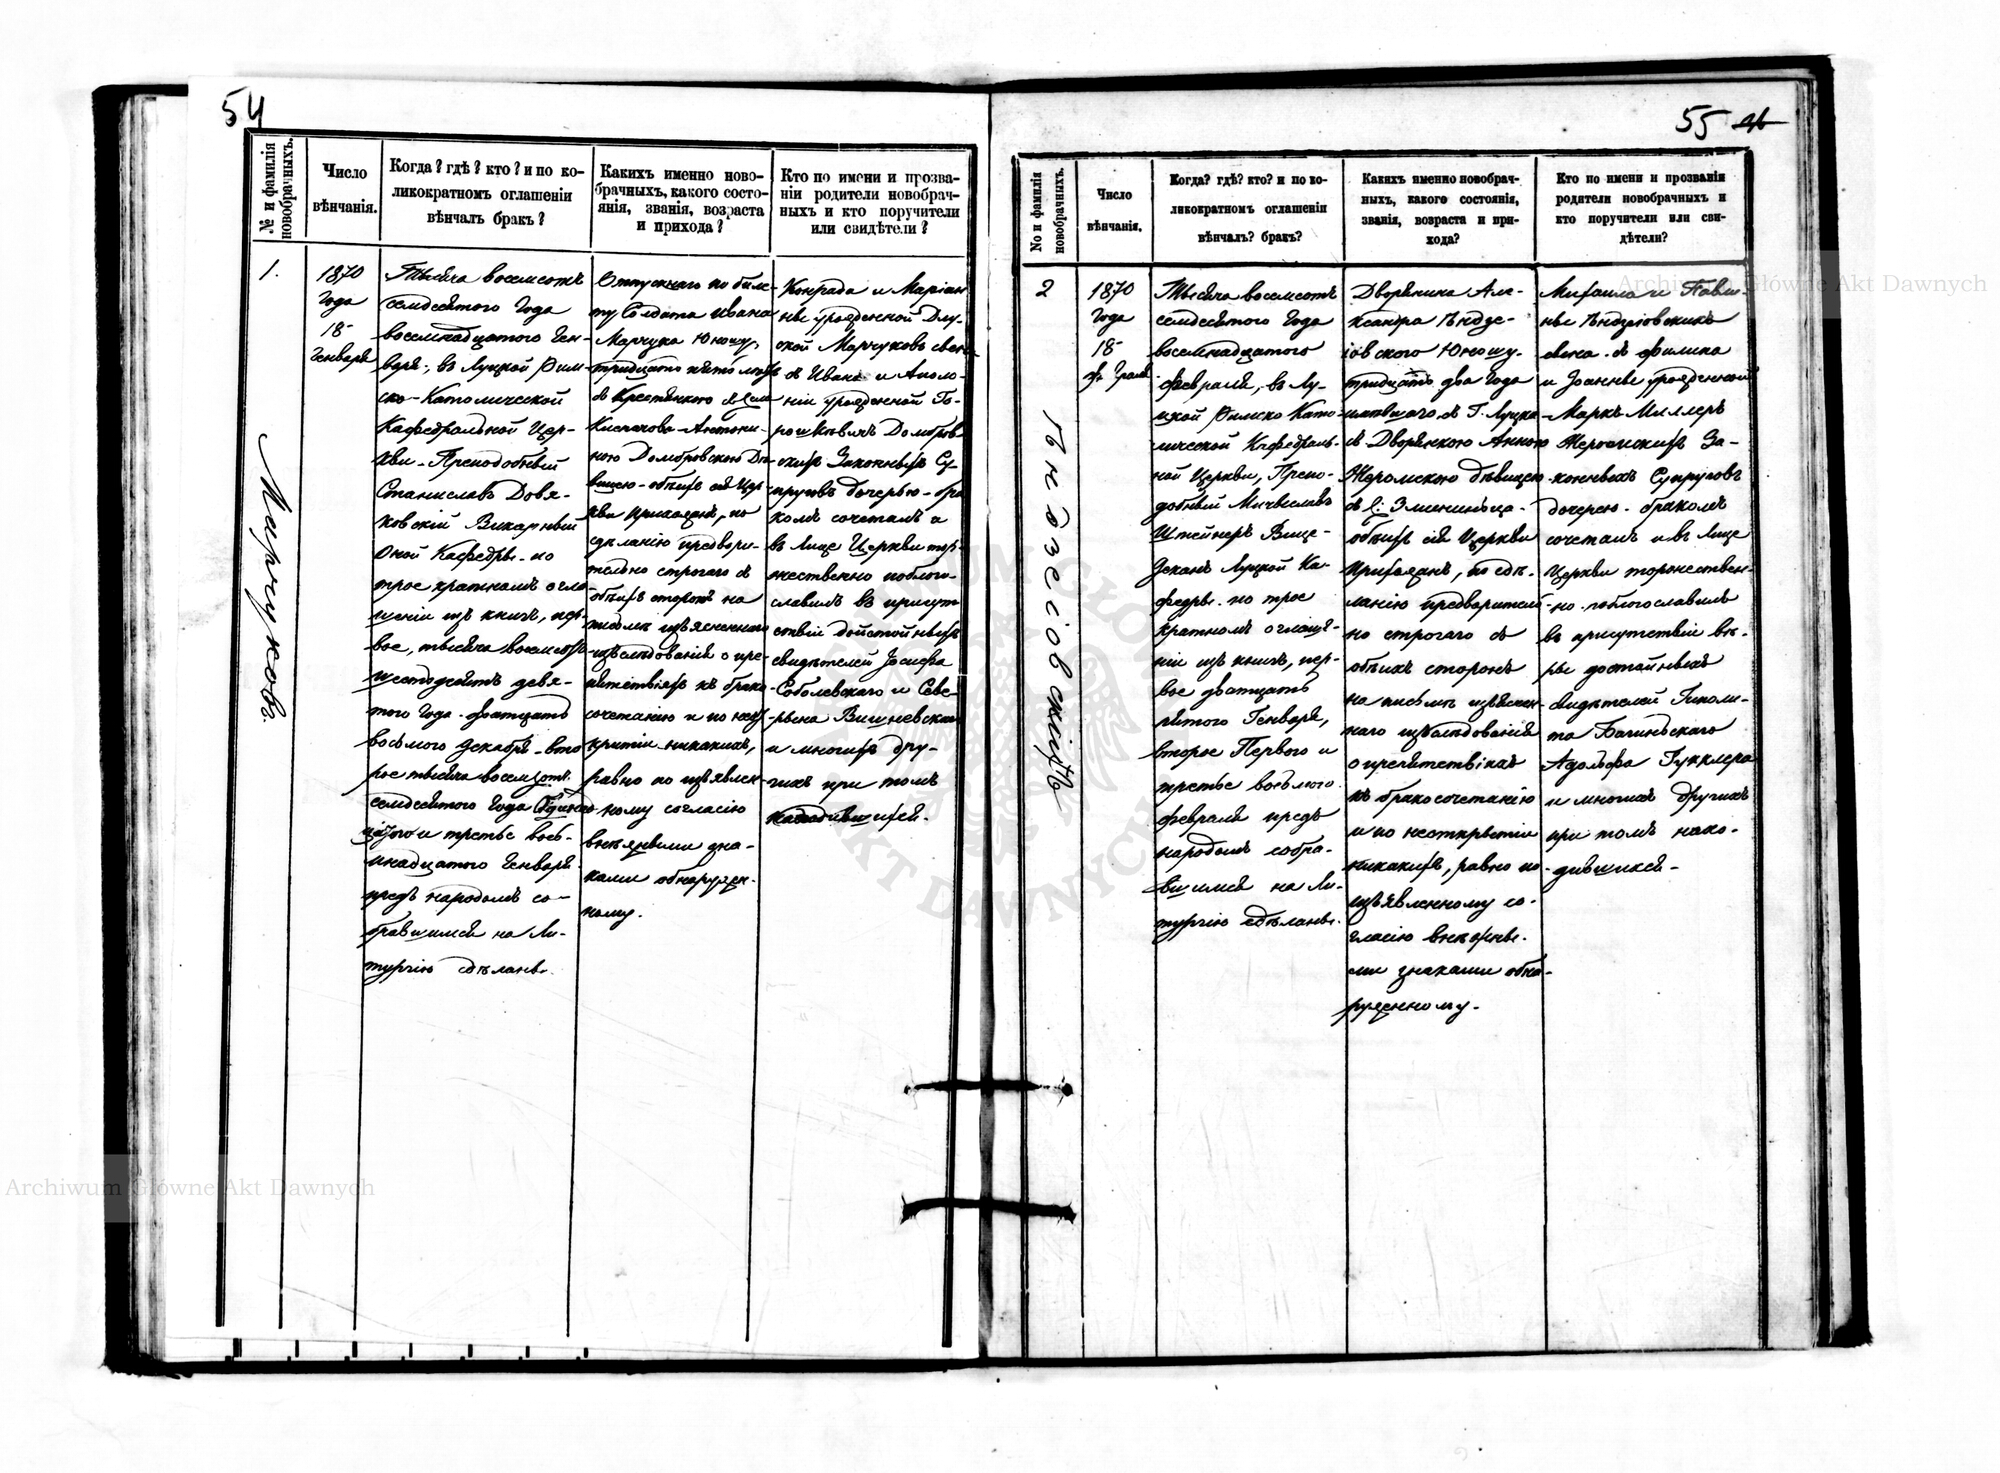 54
№ и фамилія новобрачныхъ.
Число вѣнчанія.
Когда? гдѣ? кто? и по ко-
ликократномъ оглашеніи
вѣнчалъ бракъ?
Какихъ именно ново-
брачныхъ, какого состо-
янія, званія, возраста
и прихода?
Кто по имени и прозва-
ніи родители новобрач-
ныхъ и кто поручители
или свидѣтели?
1.
Марчуковъ.
1870
Года
18
Генваря
Тысяча восемсотъ
семдесятого Года
восемнадцатого Ген-
варя, въ Луцкой Рим-
ско-Католической
Кафедральной Цер-
кви Преподобный
Станиславъ Довя-
ковскій Викарный
Оной Кафедры по
трое кратномъ огла-
шеніи изъ книгъ, пер-
вое, тысяча восемсотъ
шестдесятъ девя-
того Года двадцать
восьмого Декабря вто
рое тысяча восемсотъ
семдесятого Года
и третье восъ-
мнадцатого Генваря
предъ народомъ со-
бравшимся на Ли-
тургію сдѣланы.
Отпускнаго по биле-
ту Солдата Ивана
Марчука Юношу,
тридцать пять лѣтъ
съ Крестянкою
Антони-
ною Домбровскою Дѣ-
вицею обѣихъ сей Цер-
кви Прихожанъ, по
сдѣланію предвари-
тельно строгаго съ
обѣихъ сторонъ на
письмѣ изъясненнаго
изслѣдованія о пре-
пятствіяхъ къ брако-
сочетанію и по неот-
крытіи никакихъ,
равно по изъявлен-
ному согласію
внѣшными зна-
ками обнаружен-
ному.
Конрада и Маріан-
ны урожденной Длу-
ской Марчуковъ сына
съ Ивана и Аполо-
ніи урожденной Го-
Домбров-
скихъ Законныхъ Су-
пруговъ дочерью бра-
комъ сочеталъ и
въ Лице Церкви тор-
жественно поблаго-
славилъ въ присут-
ствіи достойныхъ
свидѣтелей Іосифа
Соболевскаго и Севе-
рына Вишневскаго
и многихъ дру-
гихъ при томъ
находившихся.
55
No и фамилія новобрачныхъ.
Число вѣнчанія.
Когда? гдѣ? кто? и по ко-
ликократномъ оглашеніи
вѣнчалъ? бракъ?
Какихъ именно новобрач-
ныхъ, какого состоянія,
званія, возраста и при-
хода?
Кто по имени и прозваніи
родители новобрачныхъ и
кто поручители или сви-
дѣтели?
2
Гндзеіовскихъ
1870
Года
18
Февраля
Тысяча восемсотъ
семдесятого Года
восемнадцатого
Февраля, въ Лу-
цкой Римско Като-
лической Кафедраль-
ной Церкви, Препо-
добный Мичыславъ
Штейнеръ Вице-
Деканъ Луцкой Ка-
федры по трое
кратномъ оглаше-
ніи изъ книгъ, пер-
вое двадцать
пятого Генваря,
второе Первого и
третье восьмого
февраля предъ
народомъ собра-
вшимся на Ли-
тургію сдѣланы.
Дворянина Але-
ксандра Гндзе-
іовского Юношу
тридцать два года
съ Г. Луцка
съ Дворянкою Анною
Жеромскою дѣвицею
обѣихъ сей Церкви
Прихожанъ, по сдѣ-
ланію предварительно
но строгаго съ
обѣихъ сторонъ
на письмѣ изъяснен-
наго изслѣдованія
о препятствіяхъ
къ бракосочетанію
и по неоткрытіи
никакихъ, равно по
изъявленному со-
гласію внѣшны-
ми знаками обна-
руженному.
Михаила и Паули-
ны Гндзіовскихъ
сына съ Феликса
и Іоанны урожденной
Маркъ Миллеръ
Жеромскихъ За-
конныхъ Супруговъ
дочерею бракомъ
сочеталъ и въ Лице
Церкви торжествен-
но поблагославилъ
въ присутствіи вѣ-
ры достойныхъ
свидѣтелей Гиполи-
та Багинскаго
Адольфа Гукклера
и многихъ другихъ
при томъ нахо-
дившихся
Archiwum Główne Akt Dawnych
Archiwum Główne Akt Dawnych